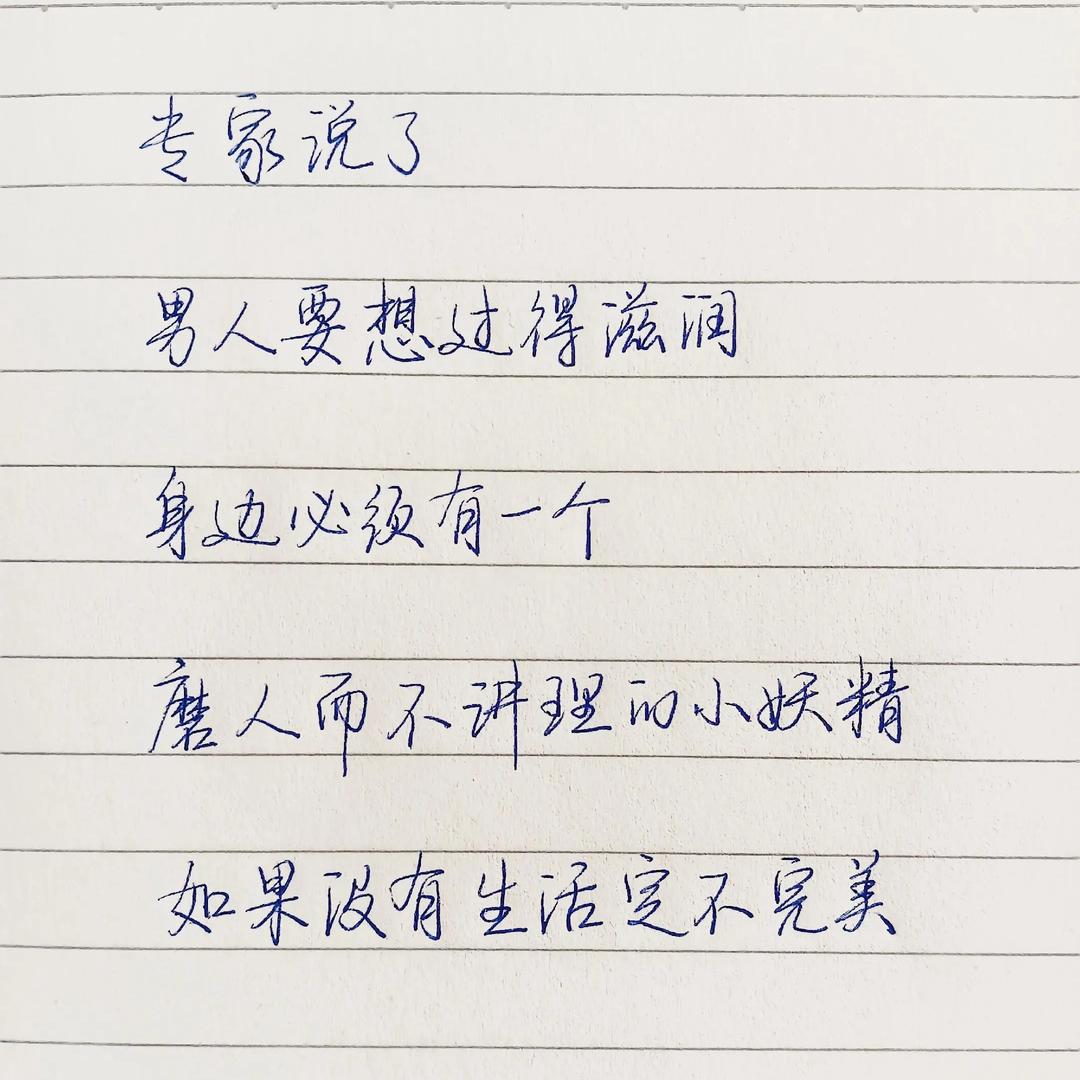 专家说了
男人要想过得滋润
身边必须有一个
磨人而不讲理的小妖精
如果没有生活定不完美